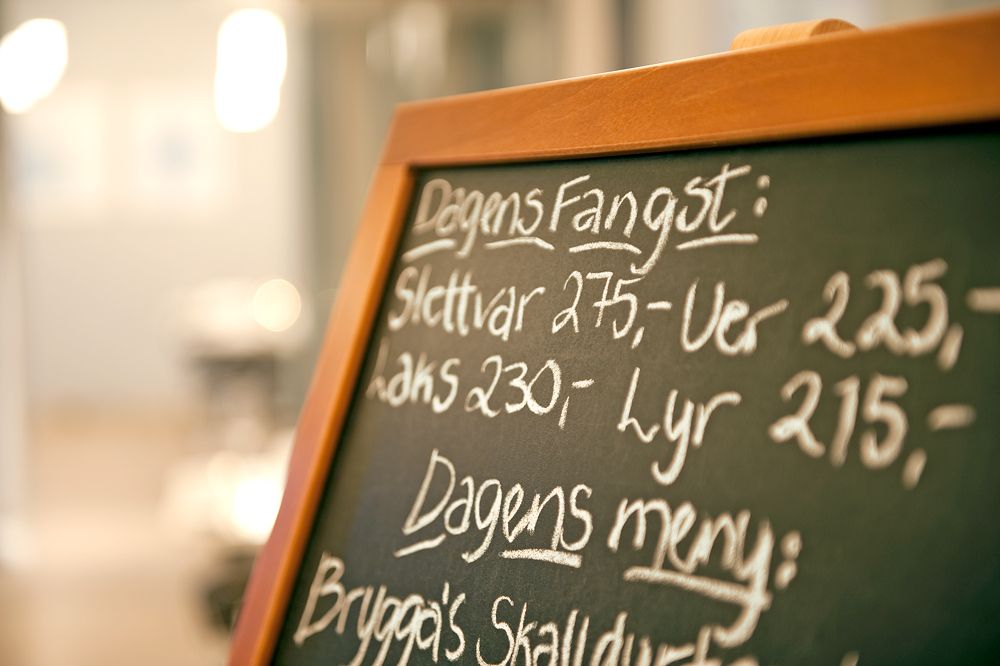 Dagens Fangst:
Slettvar 275,- Uer 225,-
Laks 230,- Lyr 215,-
Dagens meny:
Brygga's